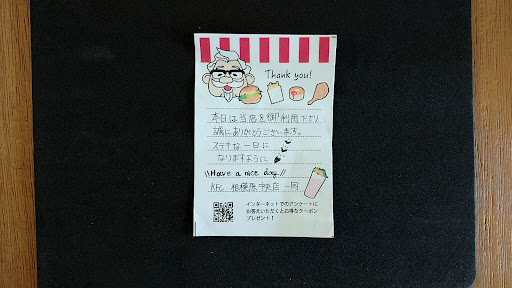 Thank you!
本日は当店を御利用下さり
誠にありがとうございます。
ステキな一日に
なりますように
\\Have a nice day//
KFC 相模原中央店 一同
インターネットでのアンケートに
お答えいただくとお得なクーポン
プレゼント！